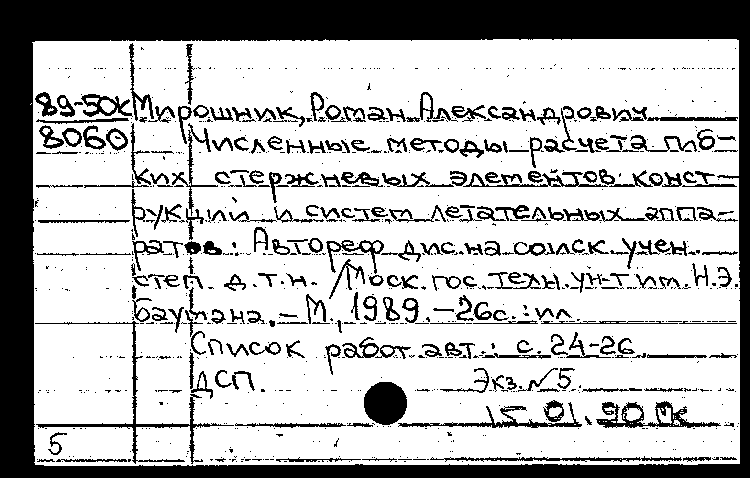 89-50к Мирошник, Роман Александрович
8060 Численные методы расчета гиб-
ких стержневых элементов конст-
рукций и систем летательных аппа-
ратов: Автореф дис. на соиск. учен.
степ. д.т.н. /Моск. гос. техн. ун-т им. Н.Э.
Баумана. – М., 1989. – 26с.: ил.
Список работ авт.: с. 24-26
ДСП. Экз. №5.
15.01.90
5